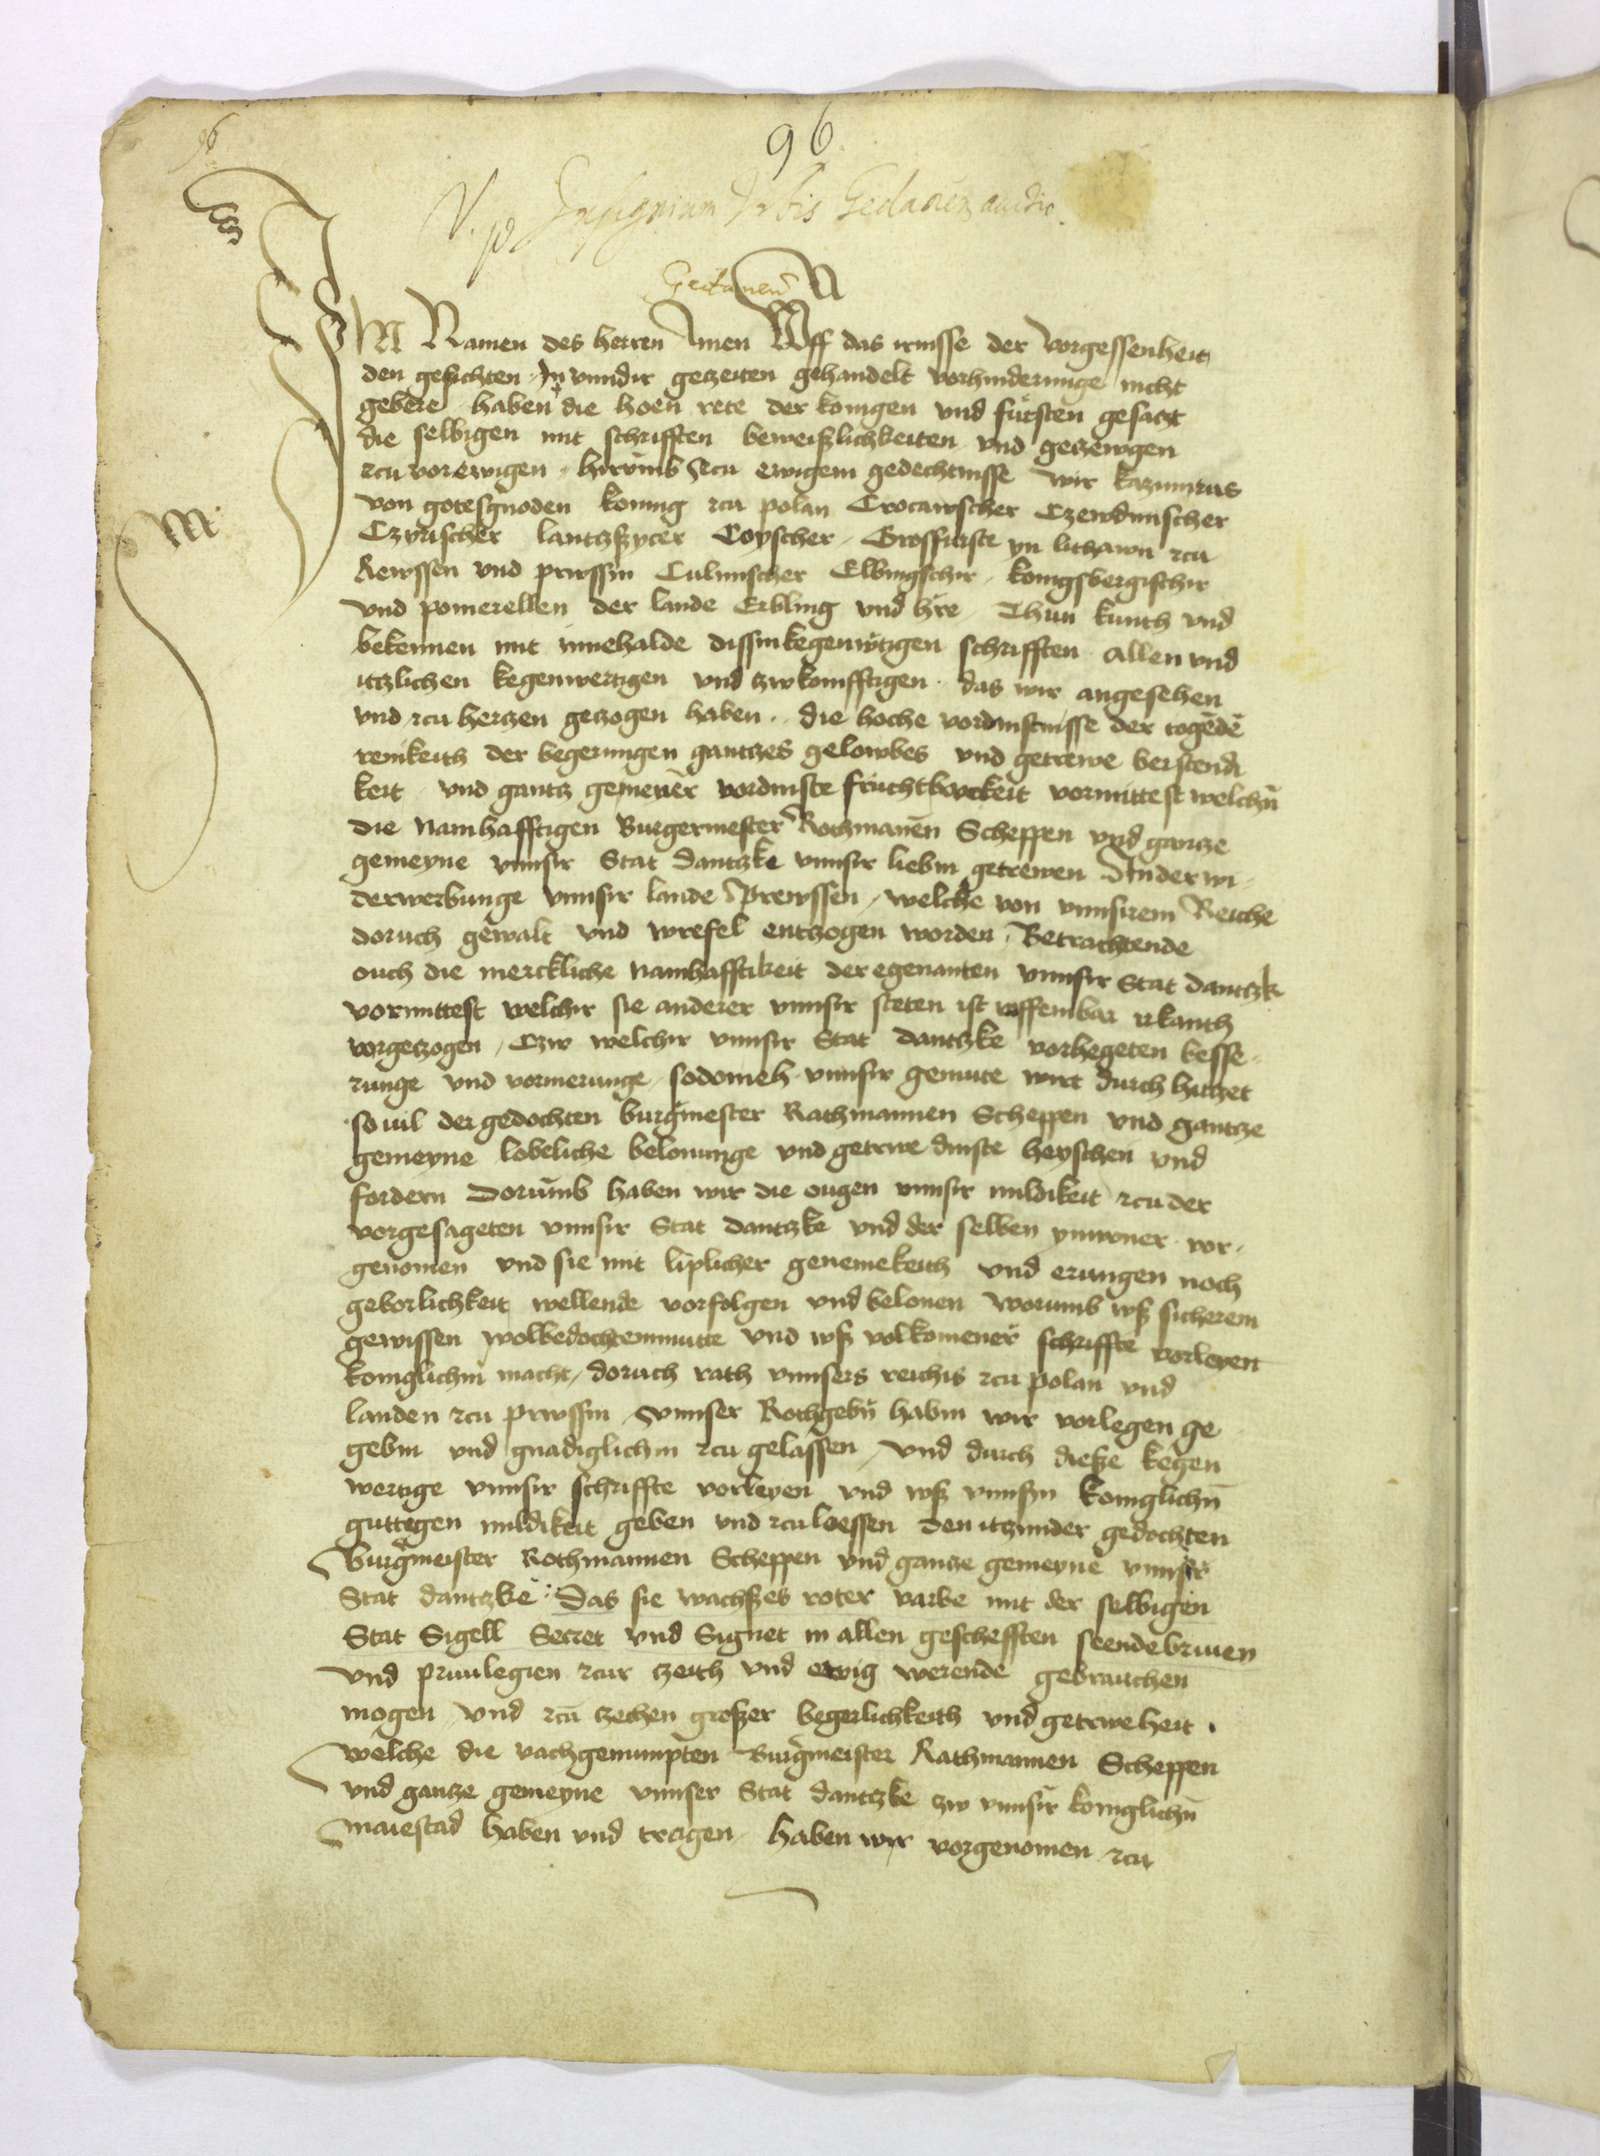 96
Insignium Urbis Gedanen
Gedanen
IN Namen des herren Amen Uff das irnisse der vorgessenheit
den geschichten In unndir geczeiten gehandelt vorhinderunge nicht
gebere haben die hoen rete der konigen und fürsten gesatzt
die selbigen mit schrifften beweißlichkeiten und geczewgen
zcu vorewigen hirumb zcu ewigem gedechtnisse wir Kazimirus
von gotesgnoden koning zcu polan Crocawscher Czewdmischer
Czyrischer lantczßycer Coyscher Grosfurste yn lithawn zcu
Rewssen und prwssin Culmischer Elbingschir konigsbergischir
und pomerellen der lande Erbling und hre Thun kunth und
bekennen mit innehalde dissin kegenwtigen schrifften allen und
itzlichen kegenwertigen und zwkomfftigen das wir angesehen
und zcu herczen geczogen haben die hoche vordinstnisse der togēdē
reinikeith der begerungen gantczes gelowbes und getrewe berstendi
keit und gantcz gemener vordinste fruchtborkeit vormittest welchn
die namhafftigen Burgermester Rothmanen Scheppen und gantze
gemeyne unnsir Stat dantzke unnsir liebin getrewen In der wi
derwerbunge unnsir lande Prewssen welche von unnsirem Reiche
doruch gewalt und wrefel entzogen worden Betrachtende
ouch die merckliche namhafftikeit der egenanten unnsir Stat dantzk
vormittest welchir sie anderer unnsir steten ist uffembar irkanth
vorgeczogen Czw welchir unnsir Stat dantzke vorhegeten besse
runge und vormerunge sodomeh unnsir gemute wirt durch hitzet
so vil der gedochten burgmester Rathmannen Scheppen und gantze
gemeyne lobeliche belonunge und getrwe dinste heyschen und
fordern Dorumb haben wir die ougen unnsir mildikeit zcu der
vorgesageten unnsir Stat dantzke und der selben ynwoner vor
genomen und sie mit liplicher genemekeith und erungen noch
geborlichkeit wellende vorfolgen und belonen worumb wß sicherem
gewissen wolbedochtemmutte und wß volkomener schriffte vorleyen
koniglichin macht doruch rath unnsers reichis zcu polan und
landen zcu prwssin unnser Rothgebn habin wir vorlegen ge
gebin und gnadiglichin zcu gelassen und durch dieße kegen
wertige unnsir schriffte vorleyen und wß unnsyn koniglichn
guttegen mildikeit geben und zculoessen den itzunder gedochten
Burgmeister Rothmannen Scheppen und gantze gemeyne unnsir
Stat dantzke Das sie wachßes roter varbe mit der selbigen
Stat Sigell Secret und Signet in allen geschefften seendebriven
und privilegien zcur zeith und ewig werende gebrauchen
mogen und zcu zechen großer begerlichkeith und getrweheit
welche die vachgenumpten Burgmeister Rathmannen Scheppen
und gantze gemeyne unnser Stat dantzke zw unnsir koniglichn
maiestad haben und tragen haben wir vorgenomen zcu